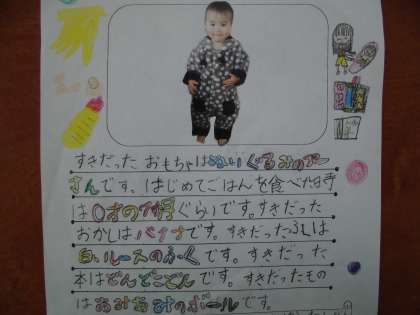 すきだった おもちゃはぬいぐるみのプー
さんです。はじめてごはんを食べた時
は0才の
ぐらいです。すきだった
おかしはバナナです。すきだった
は
白いレースのふくです。すきだった
本はどんどこどんです。すきだったもの
はあみあみのボールです。